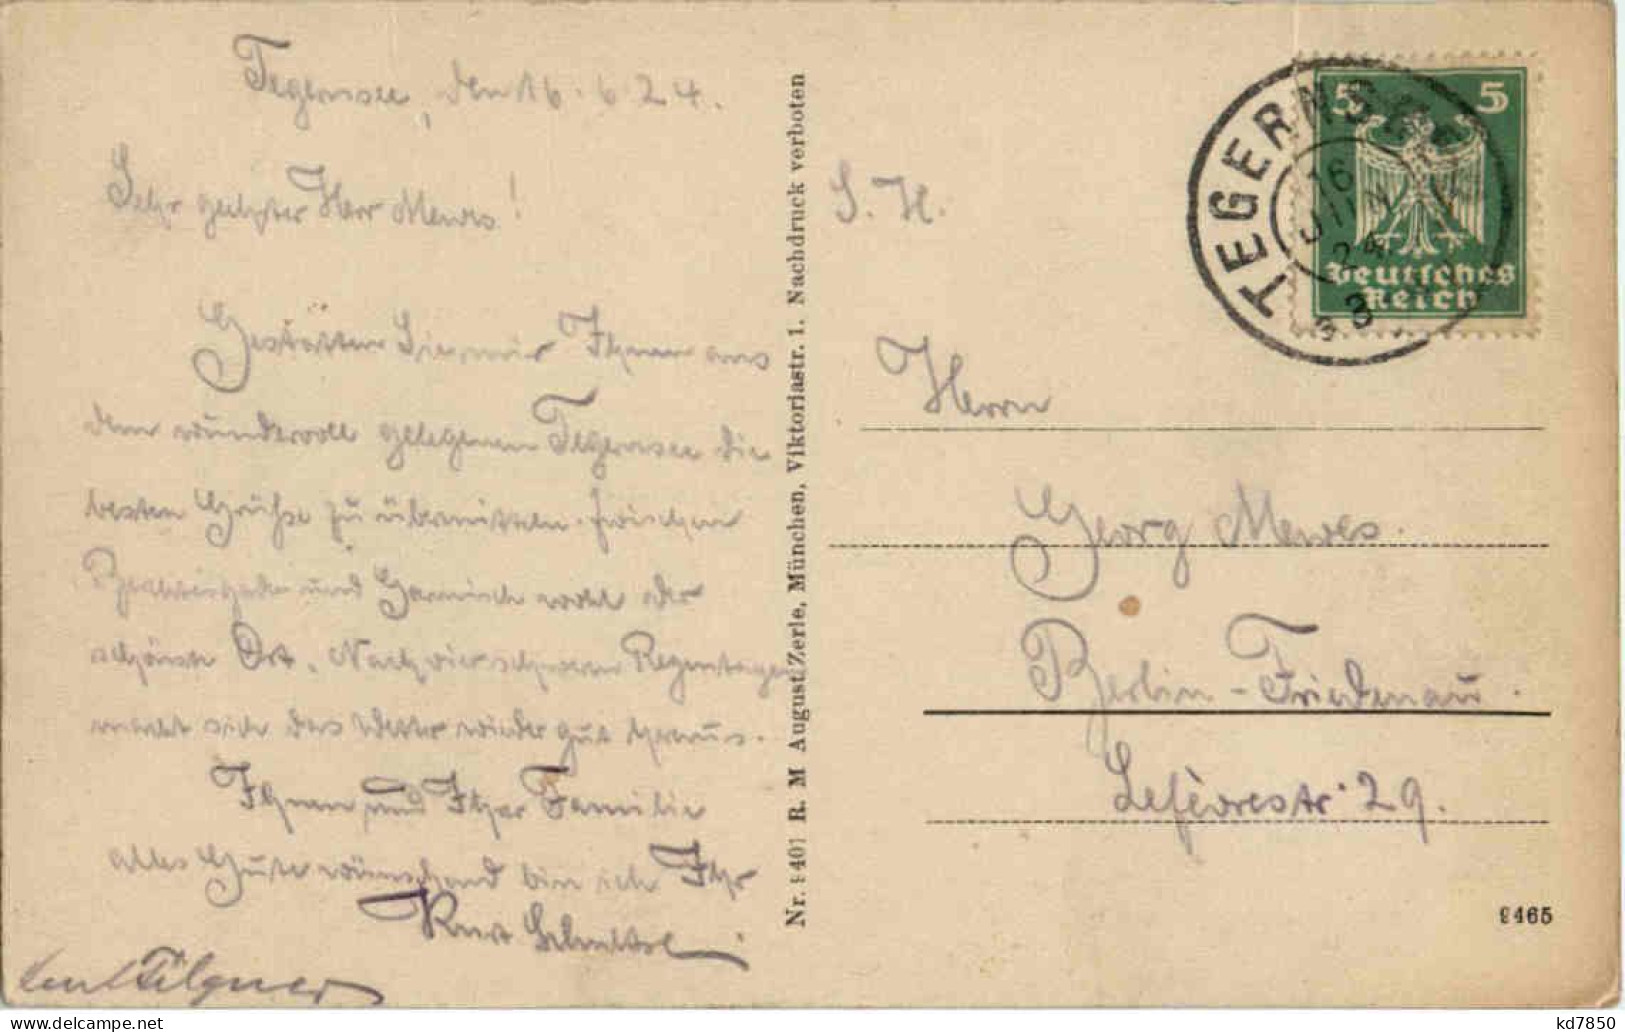 Tegernsee, den 16.6.24.
Sehr geehrter Herr Mewes!
Gestatten Sie mir Ihnen aus
dem wundervoll gelegenen Tegernsee die
besten Grüße zu übermitteln. Zwischen
und Garmisch wohl der
schönste Ort. Nach vier schweren Regentagen
macht sich das Wetter wieder gut heraus.
Ihnen und Ihrer Familie
alles Gute wünschend bin ich Ihr
Kurt
Tilgner
Nr. 9407 R. M August Zerle, München, Viktoriastr. 1. Nachdruck verboten
S. H.
TEGERNSEE
16
JUN
24
8
5 5
Deutsches
Reich
Herrn
Georg Mewes.
Berlin-Friedenau.
Lefèvrestr. 29.
9465
kd7850